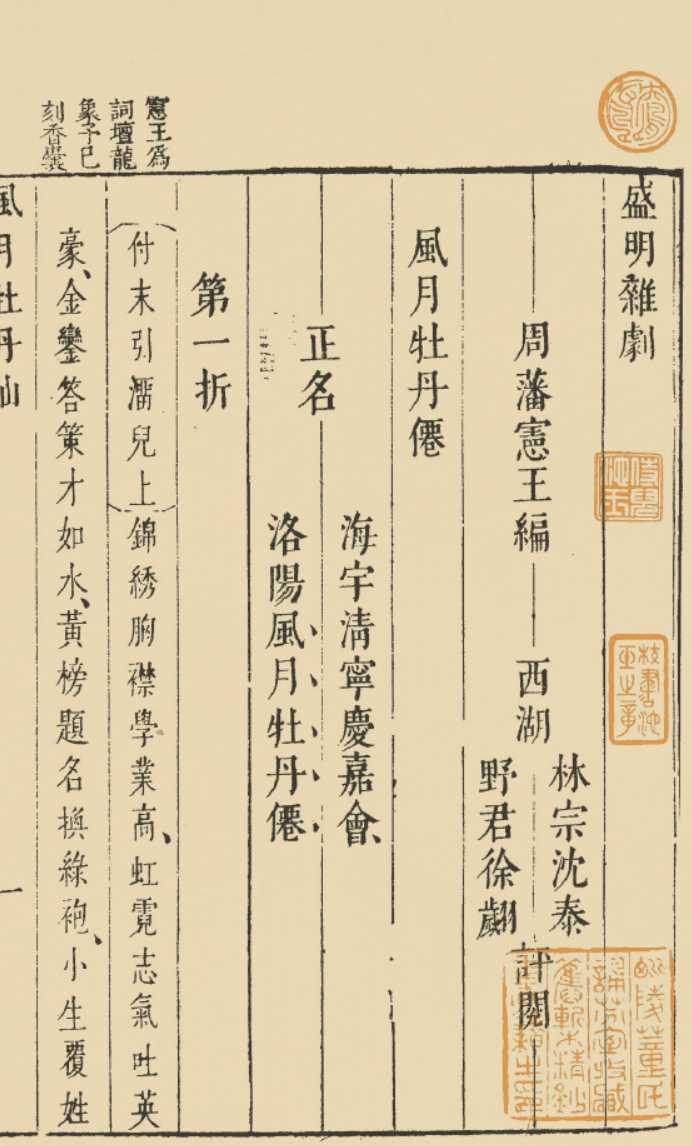 憲王爲
詞壇龍
象予已
刻香囊
盛明雜劇
周藩憲王編
西湖
林宗沈泰
野君徐翽
評閱
風月牡丹僊
正名
海宇清寧慶嘉會、
洛陽風月牡丹僊
第一折
（付末引淨兒上）錦綉胸襟學業高、虹霓志氣吐英
豪、金鑾答策才如水、黃榜題名換綠袍、小生覆姓
風月牡丹仙
一